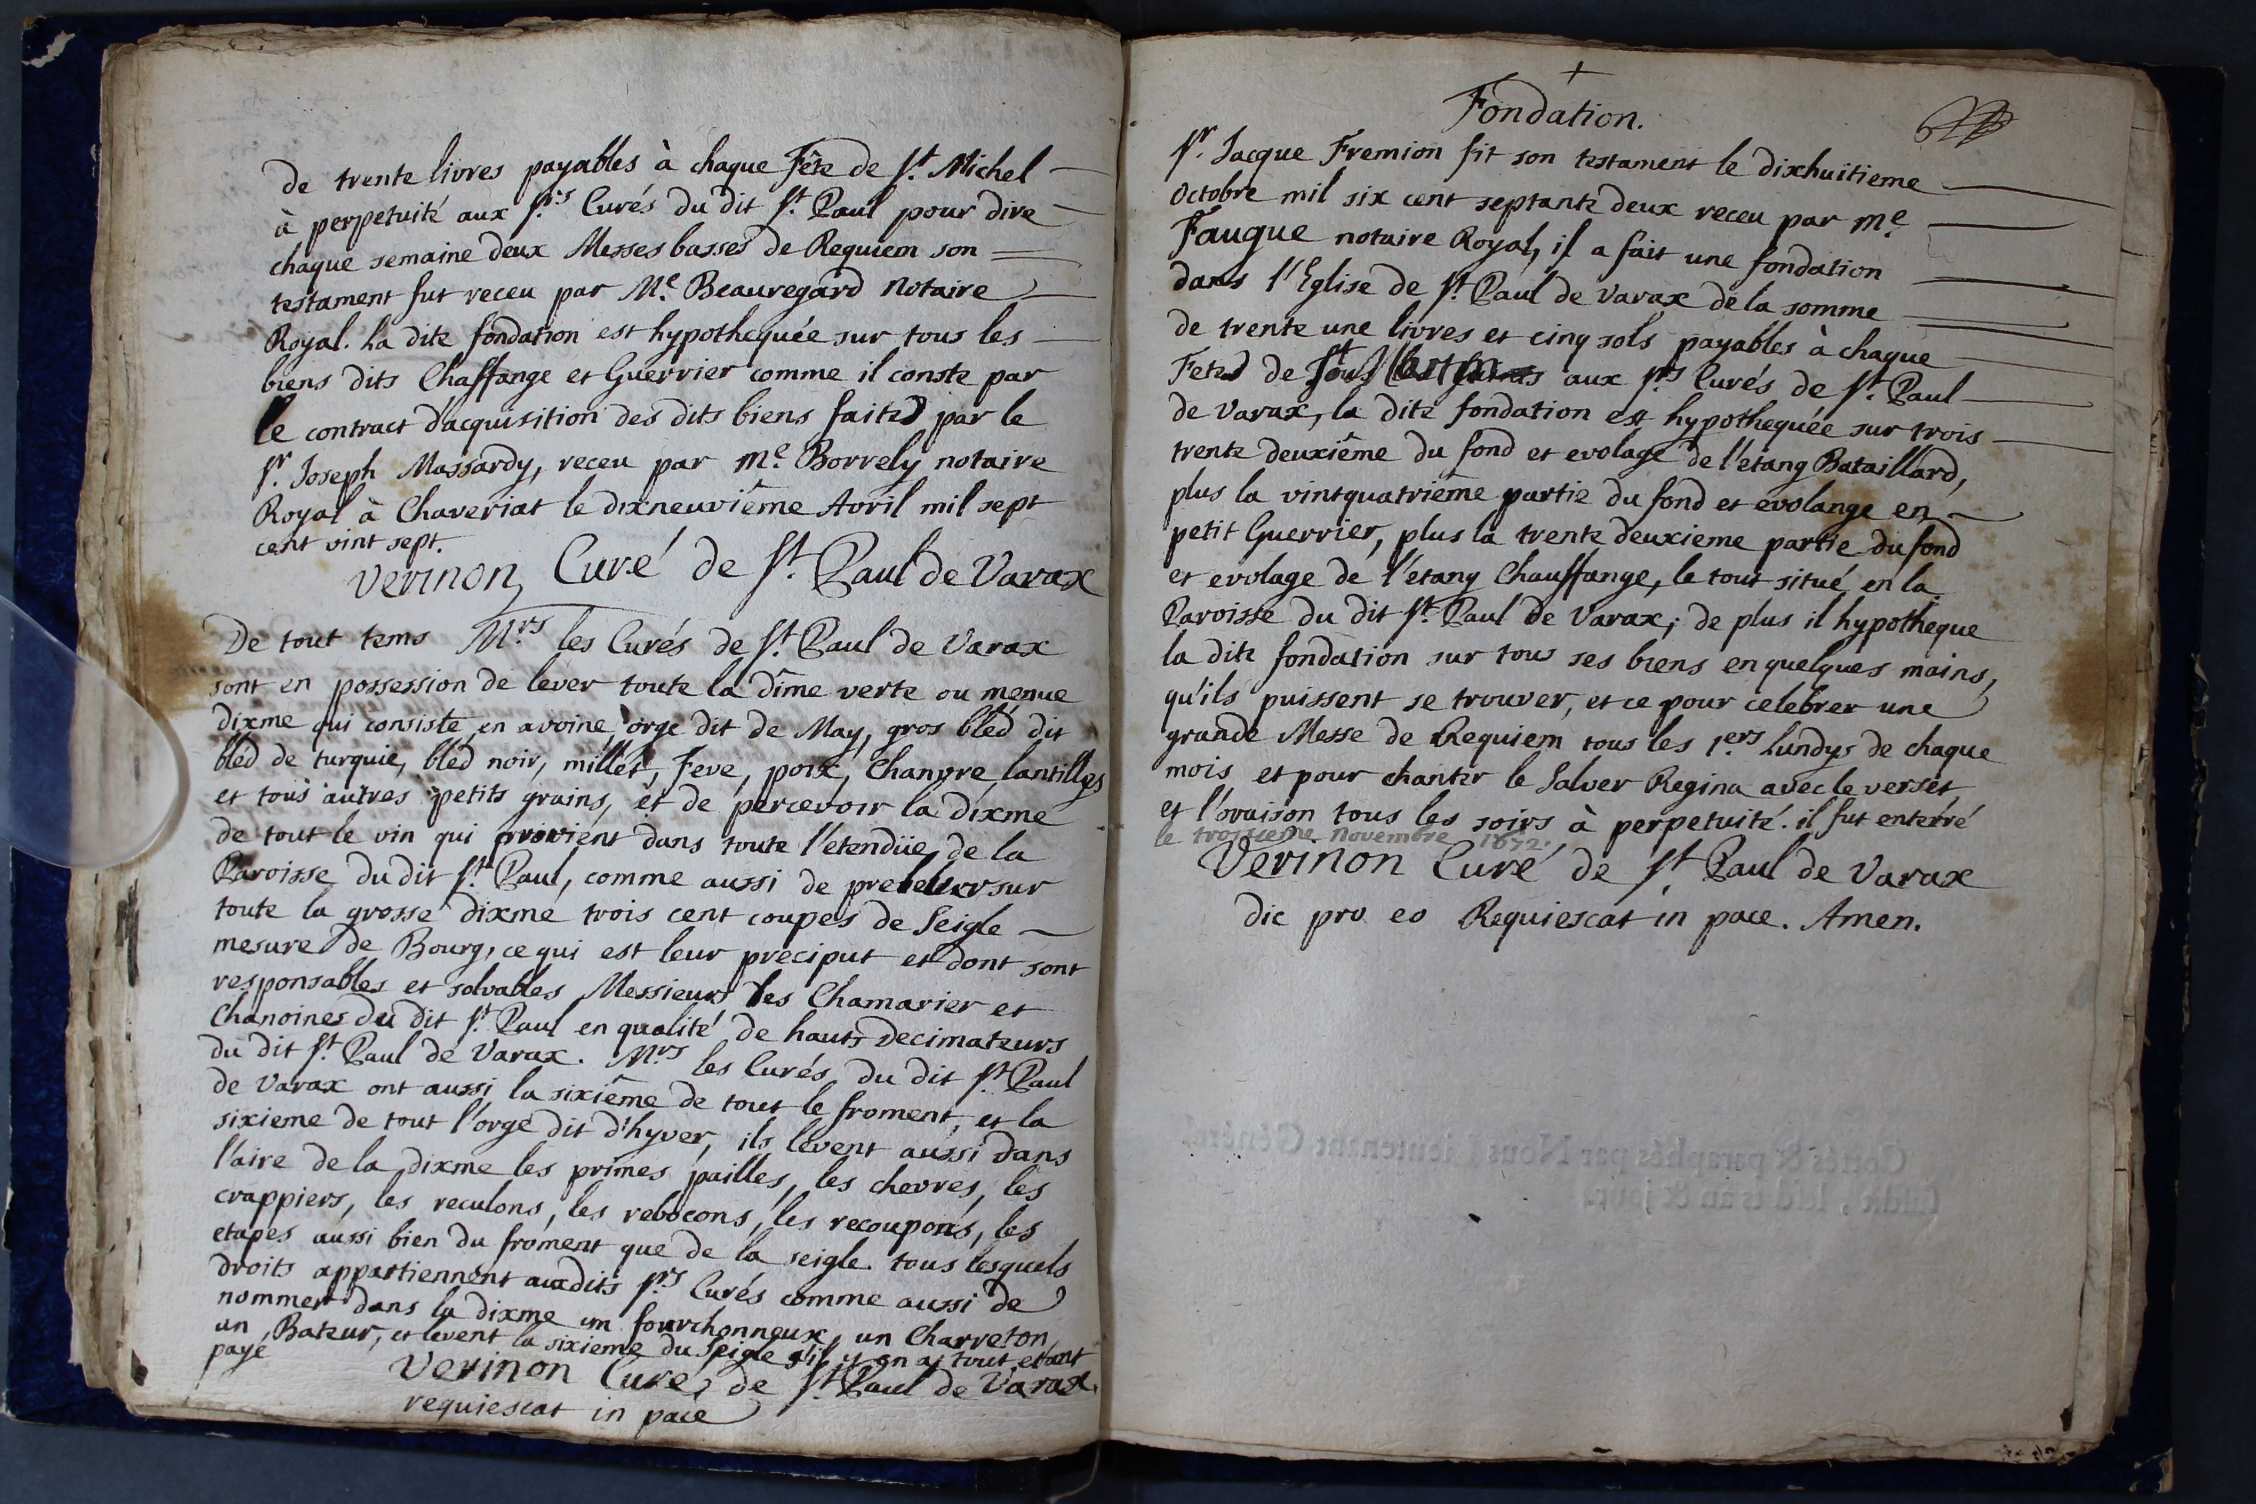 de trente livres payables à chaque Fête de St. Michel
à perpetuité aux Srs. Curés du dit St. Paul pour dire
chaque semaine deux Messes basses de Requiem son
testament fut receu par Me. Beauregard Notaire
Royal. La dite fondation est hypothequée sur tous les
biens dits Chaffange et Guerrier comme il conste par
le contract d'acquisition des dits biens faite par le
Sr. Joseph Massardy, receu par me. Borrely notaire
Royal à Chaveriat le dixneuviême Avril mil sept
cent vint sept.
Verinon, Curé de St. Paul de Varax
De tout tems Mrs. les Curés de St. Paul de Varax
sont en possession de lever toute la dîme verte ou menue
dixme qui consiste en avoine, orge dit de May, gros bled dit
bléd de turquie, bléd noir, millet, feve, poix, Chanvre lantilles
et tous autres petits grains, et de percevoir la dixme
de tout le vin qui provient dans toute l'etendüe de la
Paroisse du dit St. Paul, comme aussi de prelever sur
toute la grosse dixme trois cent coupes de Seigle
mesure de Bourg, ce qui est leur preciput et dont sont
responsables et solvables Messieurs les Chamarier et
Chanoines du dit St. Paul en qualité de hauts Decimateurs
du dit St. Paul de Varax. Mrs. les Curés du dit St. Paul
de Varax ont aussi la sixiême de tout le froment, et la
sixieme de tout l'orge dit d'hyver, ils levent aussi dans
l'aire de la dixme les primes pailles, les chevres, les
crappiers, les reculons, les rebocons, les recoupons, les
etapes aussi bien du froment que de la seigle. tous lesquels
droits appartiennent auxdits Srs. Curés comme aussi de
nommer dans la dixme un fourchonneux, un Charreton
un Bateur, et levent la sixieme du Seigle s'il y en a, tout etant
payé
Verinon Curé, de St. Paul de Varax.
requiescat in pace
+
Fondation.
Sr. Jacque Fremion fit son testament le dixhuitieme
Octobre mil six cent septante deux receu par me.
Fauque notaire Royal, il a fait une fondation
dans l'Eglise de St. Paul de Varax de la somme
de trente une livres et cinq sols payables à chaque
Fetes de St. aux Srs. Curés de St. Paul
de Varax, la dite fondation est hypothequée sur trois
trente deuxiême du fond et evolage de l'étang Bataillard,
plus la vintquatriême partie du fond et evolange en
petit Guerrier, plus la trente deuxieme partie du fond
et evolage de l'étang Chauffange, le tout situé en la
Paroisse du dit St. Paul de Varax; de plus il hypotheque
la dite fondation sur tous ses biens en quelques mains,
qu'ils puissent se trouver, et ce pour celebrer une
grande Messe de Requiem tous les 1ers. Lundys de chaque
mois et pour chanter le Salver Regina avec le verset
et l'oraison tous les soirs à perpetuité. il fut enterré
le troisieme novembre 1672.
Verinon Curé de St. Paul de Varax
dic pro eo Requiescat in pace. Amen.